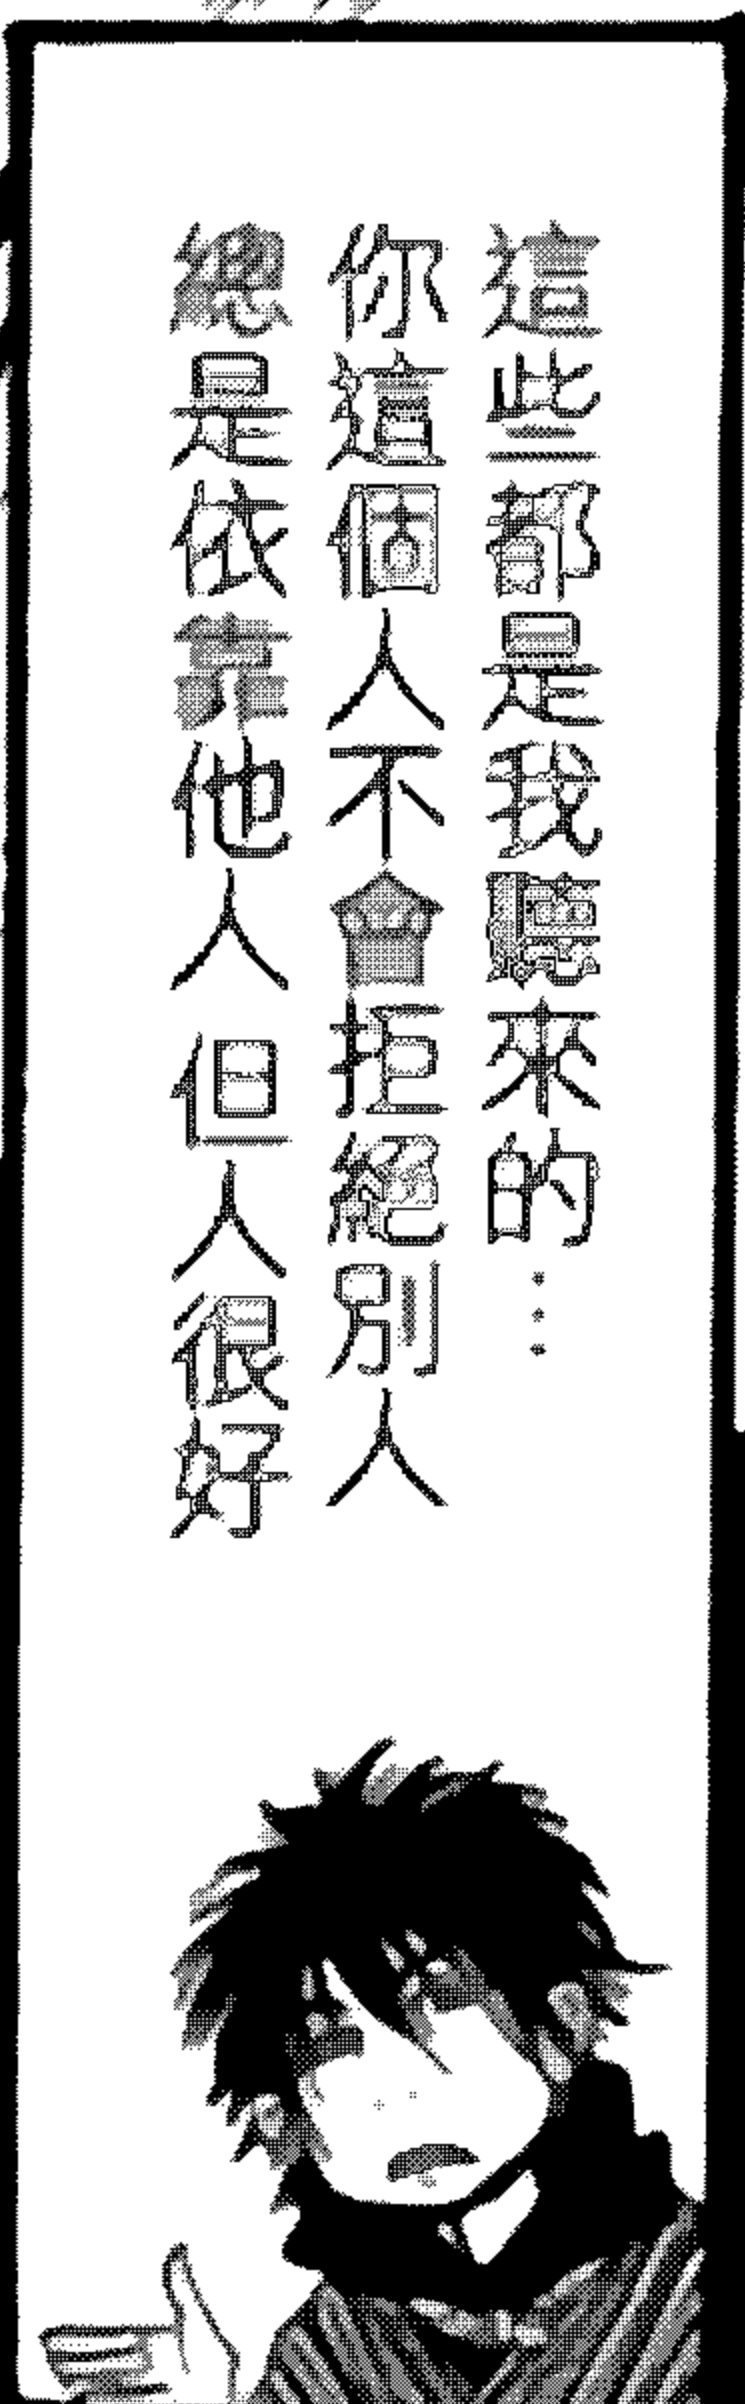 這些都是我聽來的…
你這個人不會拒絕別人
總是依靠他人 但人很好